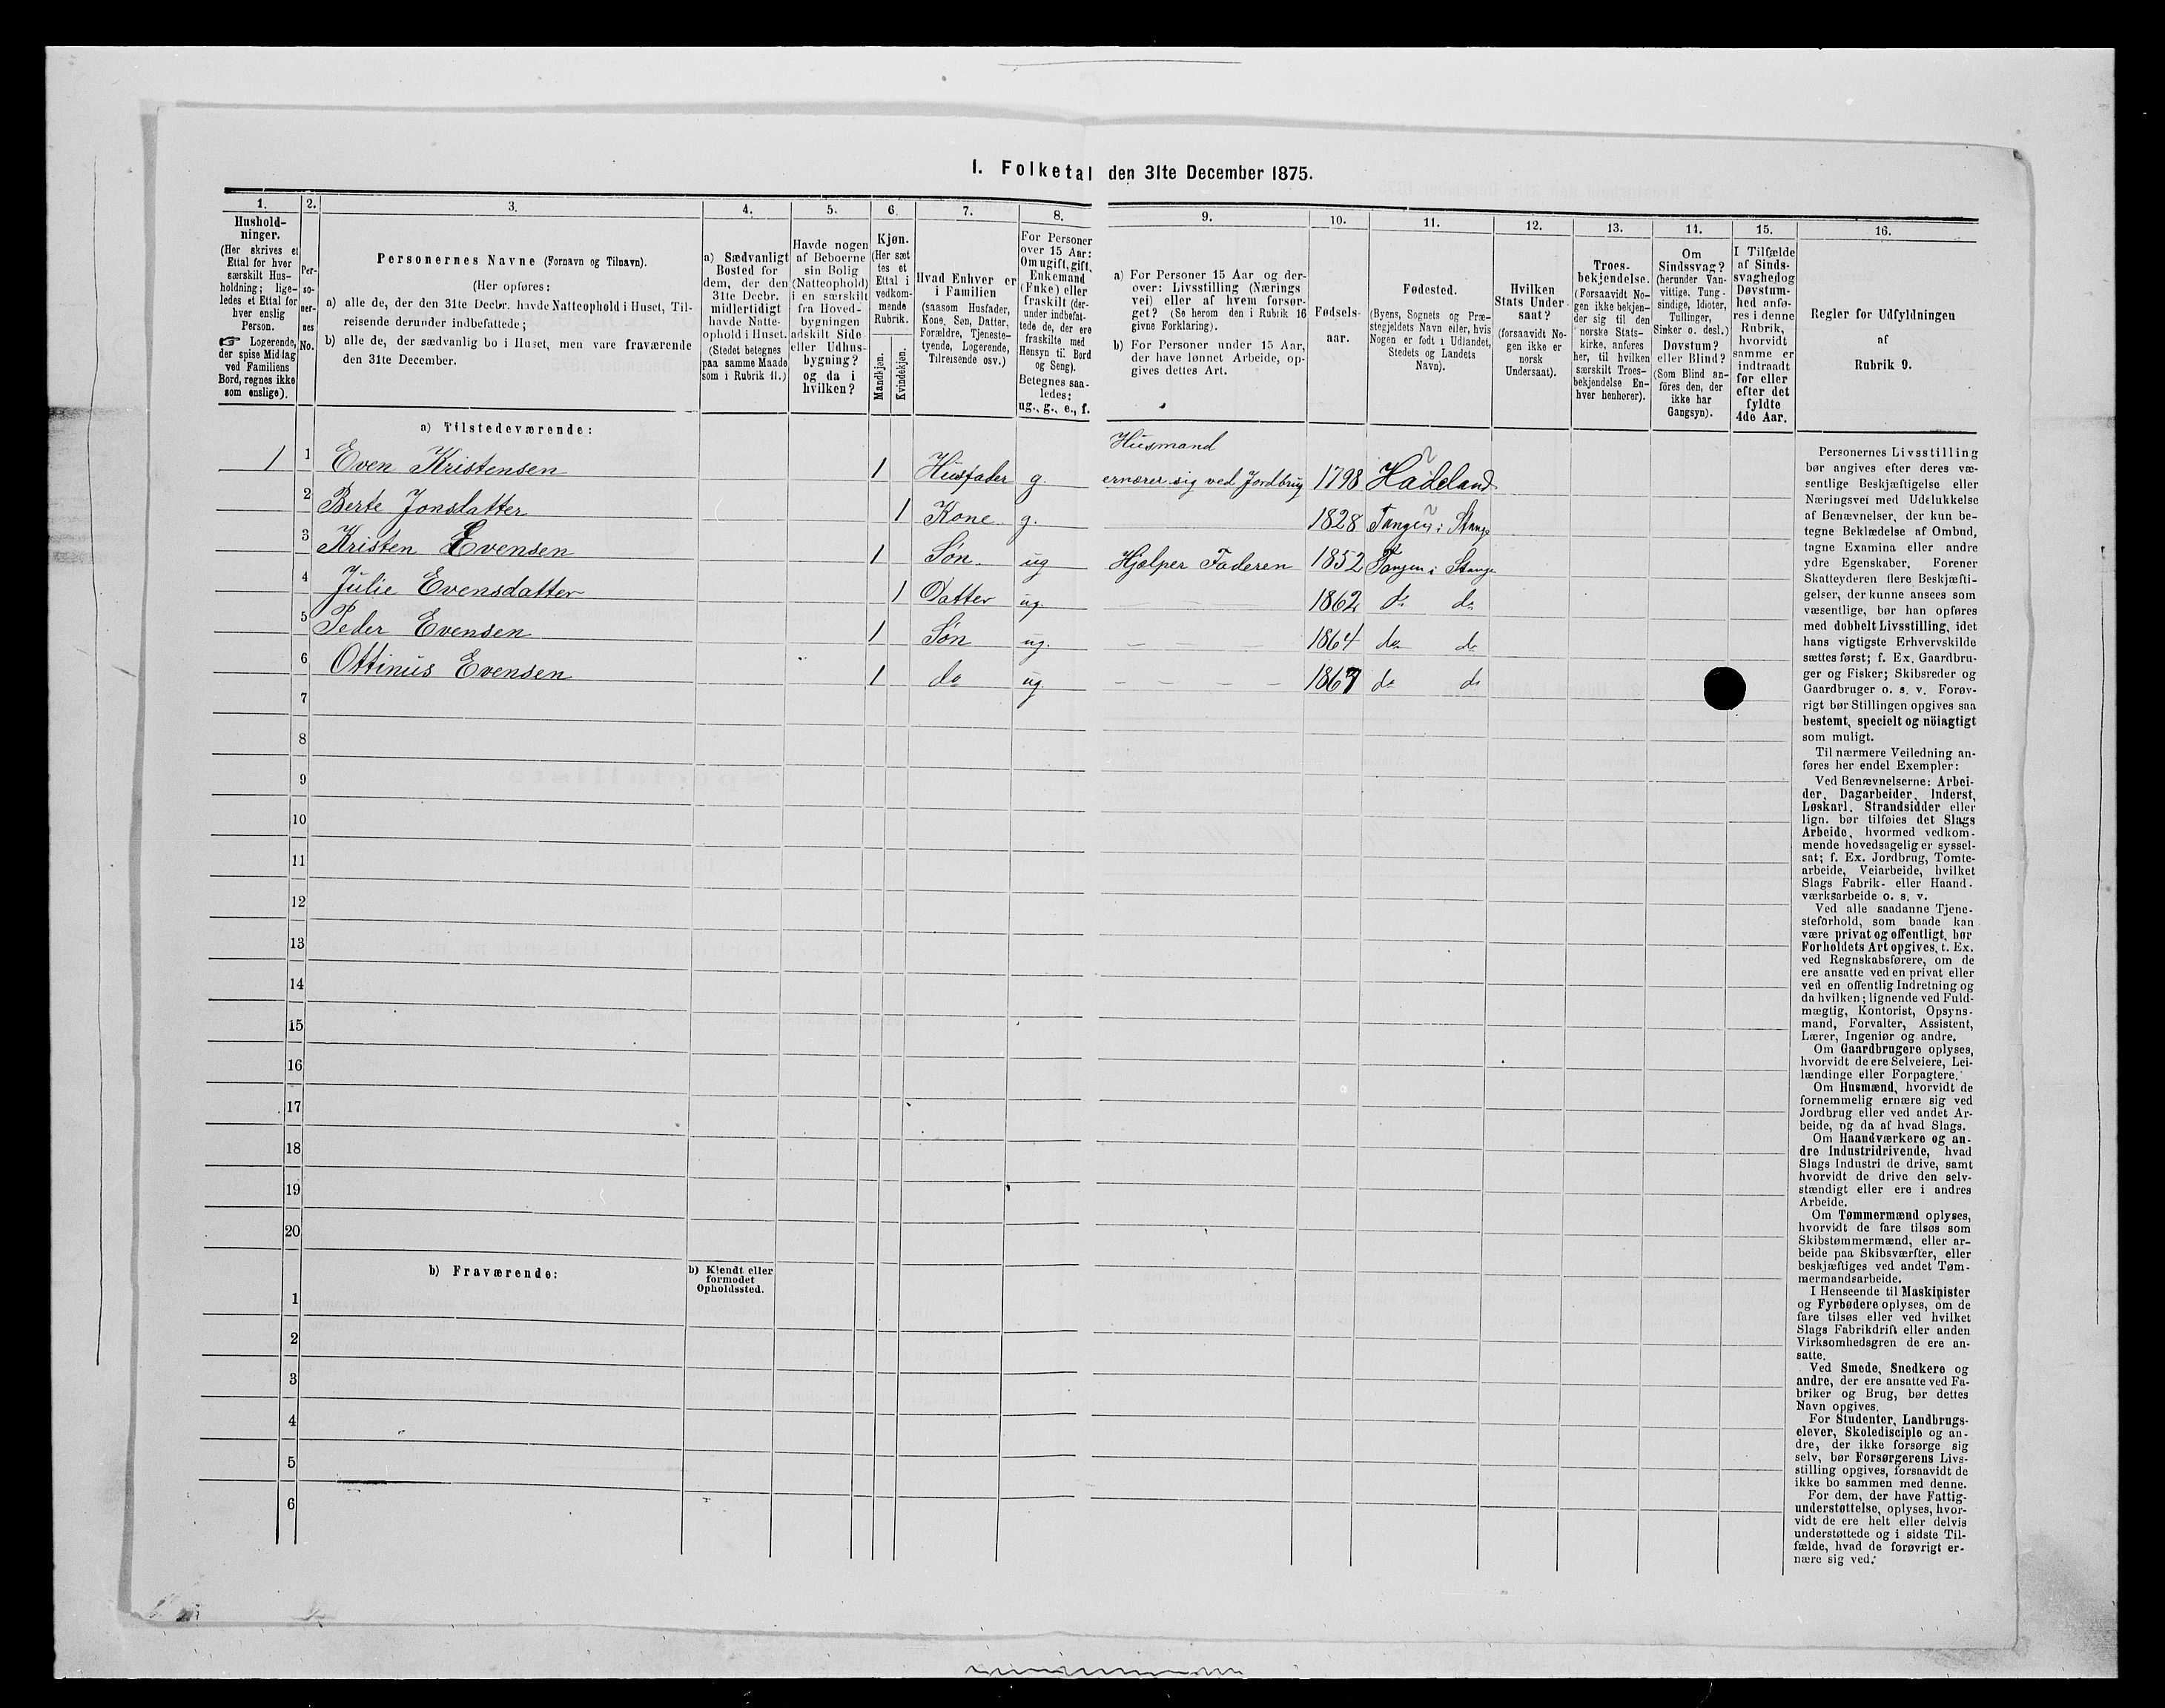 I. Folketal den 31te December 1875.
1.
Hushold-
ninger.
(Her skrives et
Ettal for hver
særskilt Hus-
holdning; lige-
ledes et Ettal for
hver enslig
Person.
☞ Logerende,
der spise Middag
ved Familiens
Bord, regnes ikke
som enslige).
2.
Per-
so-
ner-
nes
No.
3.
Personernes Navne (Fornavn og Tilnavn).
(Her opføres:
a) alle de, der den 31te Decbr. havde Natteophold i Huset, Til-
reisende derunder indbefattede;
b) alle de, der sædvanlig bo i Huset, men vare fraværende
den 31te December.
4.
a) Sædvanligt
Bosted for
dem, der den
31te Decbr.
midlertidigt
havde Natte-
ophold i Huset.
(Stedet betegnes
paa samme Maade
som i Rubrik 11.)
5.
Havde nogen
af Beboerne
sin Bolig
(Natteophold)
i en særskilt
fra Hoved-
bygningen
adskilt Side
eller Udhus-
bygning?
og da i
hvilken?
6.
Kjøn.
(Her sæt
tes et
Ettal i
vedkom-
mende
Rubrik.
Mandkjøn.
Kvindekjøn.
7.
Hvad Enhver er
i Familien
(saasom Husfader,
Kone, Søn, Datter,
Forældre, Tjeneste-
tyende, Logerende,
Tilreisende osv.)
8.
For Personer
over 15 Aar:
Om ugift, gift,
Enkemand
(Enke) eller
fraskilt (der-
under indbefat-
tede de, der ere
fraskilte med
Hensyn til Bord
og Seng).
Betegnes saa-
ledes:
ug., g., e., f.
9.
a) For Personer 15 Aar og der-
over: Livsstilling (Nærings
vei) eller af hvem forsør-
get? (Se herom den i Rubrik 16
givne Forklaring).
b) For Personer under 15 Aar,
der have lønnet Arbeide, op-
gives dettes Art.
10.
Fødsels-
aar.
11.
Fødested.
(Byens, Sognets og Præ-
stegjeldets Navn eller, hvis
Nogen er født i Udlandet,
Stedets og Landets
Navn).
12.
Hvilken
Stats Under
saat?
(forsaavidt No-
gen ikke er
norsk
Undersaat).
13.
Troes-
bekjendelse.
(Forsaavidt No-
gen ikke bekjen-
der sig til den
norske Stats-
kirke, anføres
her, til hvilken
særskilt Troes-
bekjendelse En-
hver henhører).
14.
Om
Sindssvag?
(herunder Van-
vittige, Tung-
sindige, Idioter,
Tullinger,
Sinker o. desl.)
Døvstum?
eller Blind?
(Som Blind an-
føres den, der
ikke har
Gangsyn).
15.
I Tilfælde
af Sinds-
svaghed og
Døvstum-
hed anfø-
res i denne
Rubrik,
hvorvidt
samme er
indtraadt
før eller
efter det
fyldte
4de Aar.
16.
Regler for Udfyldningen
af
Rubrik 9.
a) Tilstedeværende:
Husmand
1 1 Even Kristensen 1 Husfader g. ernærer sig ved Jordbrug 1798 Hadeland
2 Berte Jonsdatter 1 Kone g. 1828 Tangen i Stange
3 Kristen Evensen 1 Søn ug Hjælper Faderen 1852 Tangen i Stange
4 Julie Evensdatter 1 Datter ug. — — 1862 do do
5 Peder Evensen 1 Søn ug. — — 1864 do do
6 Ottinus Evensen 1 do ug — — — — 1867 do do
7
8
9
10
11
12
13
14
15
16
17
18
19
20
b) Fraværende:
b) Kjendt eller
formodet
Opholdssted.
1
2
3
4
5
6
Personernes Livsstilling
bør angives efter deres væ-
sentlige Beskjæftigelse eller
Næringsvei med Udelukkelse
af Benævnelser, der kun be-
tegne Beklædelse af Ombud,
tagne Examina eller andre
ydre Egenskaber. Forener
Skatteyderen flere Beskjæfti-
gelser, der kunne ansees som
væsentlige, bør han opføres
med dobbelt Livsstilling, idet
hans vigtigste Erhvervskilde
sættes først; f. Ex. Gaardbru-
ger og Fisker; Skibsreder og
Gaardbruger o. s. v. Forøv-
rigt bør Stillingen opgives saa
bestemt, specielt og nöiagtigt
som muligt.
Til nærmere Veiledning an-
føres her endel Exempler:
Ved Benævnelserne: Arbei-
der, Dagarbeider, Inderst,
Løskarl, Strandsidder eller
lign. bør tilføies det Slags
Arbeide, hvormed vedkom-
mende hovedsagelig er syssel-
sat; f. Ex. Jordbrug, Tomte-
arbeide, Veiarbeide, hvilket
Slags Fabrik- eller Haand-
værksarbeide o. s. v.
Ved alle saadanne Tjene-
steforhold, som baade kan
være privat og offentligt, bør
Forholdets Art opgives, t. Ex.
ved Regnskabsførere, om de
ere ansatte ved en privat eller
ved en offentlig Indretning og
da hvilken; lignende ved Fuld-
mægtig, Kontorist, Opsyns-
mand, Forvalter, Assistent,
Lærer, Ingeniør og andre.
Om Gaardbrugere oplyses,
hvorvidt de ere Selveiere, Lei-
lændinge eller Forpagtere.
Om Husmænd, hvorvidt de
fornemmelig ernære sig ved
Jordbrug eller ved andet Ar-
beide, og da af hvad Slags.
Om Haandværkere og an-
dre Industridrivende, hvad
Slags Industri de drive, samt
hvorvidt de drive den selv-
stændigt eller ere i andres
Arbeide.
Om Tømmermænd oplyses,
hvorvidt de fare tilsøs som
Skibstømmermænd, eller ar-
beide paa Skibsværfter, eller
beskjæftiges ved andet Tøm-
mermandsarbeide.
I Henseende til Maskinister
og Fyrbødere oplyses, om de
fare tilsøs eller ved hvilket
Slags Fabrikdrift eller anden
Virksomhedsgren de ere an-
satte.
Ved Smede, Snedkere og
andre, der ere ansatte ved Fa-
briker og Brug, bør dettes
Navn opgives.
For Studenter, Landbrugs-
elever, Skoledisciple og an-
dre, der ikke forsørge sig
selv, bør Forsørgerens Livs-
stilling opgives, forsaavidt de
ikke bo sammen med denne.
For dem, der have Fattig-
understøttelse, oplyses, hvor-
vidt de ere helt eller delvis
understøttede og i sidste Til-
fælde, hvad de forøvrigt er-
nære sig ved.